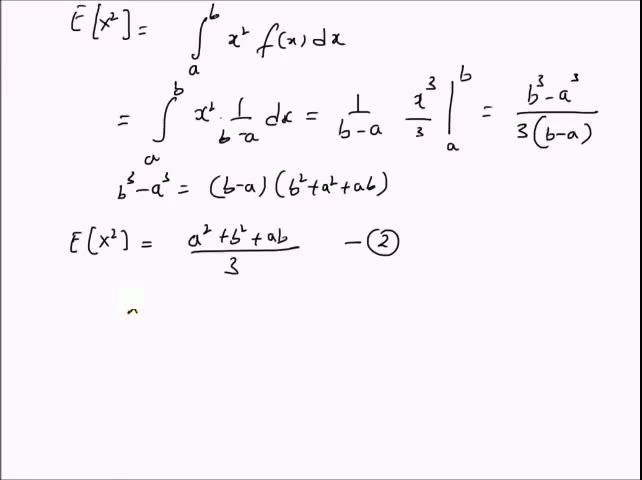 E[x²] = ∫ₐᵇ x² f(x) dx
= ∫ₐᵇ x² · 1/(b-a) dx = 1/(b-a) x³/3 |ₐᵇ = (b³-a³)/(3(b-a))
b³-a³ = (b-a)(b²+a²+ab)
E[x²] = (a²+b²+ab)/3 -②